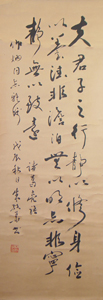 夫君子之行靜以修身儉
以養德非澹泊無以明志非寧
靜無以致遠 諸葛亮語
戊辰秋月